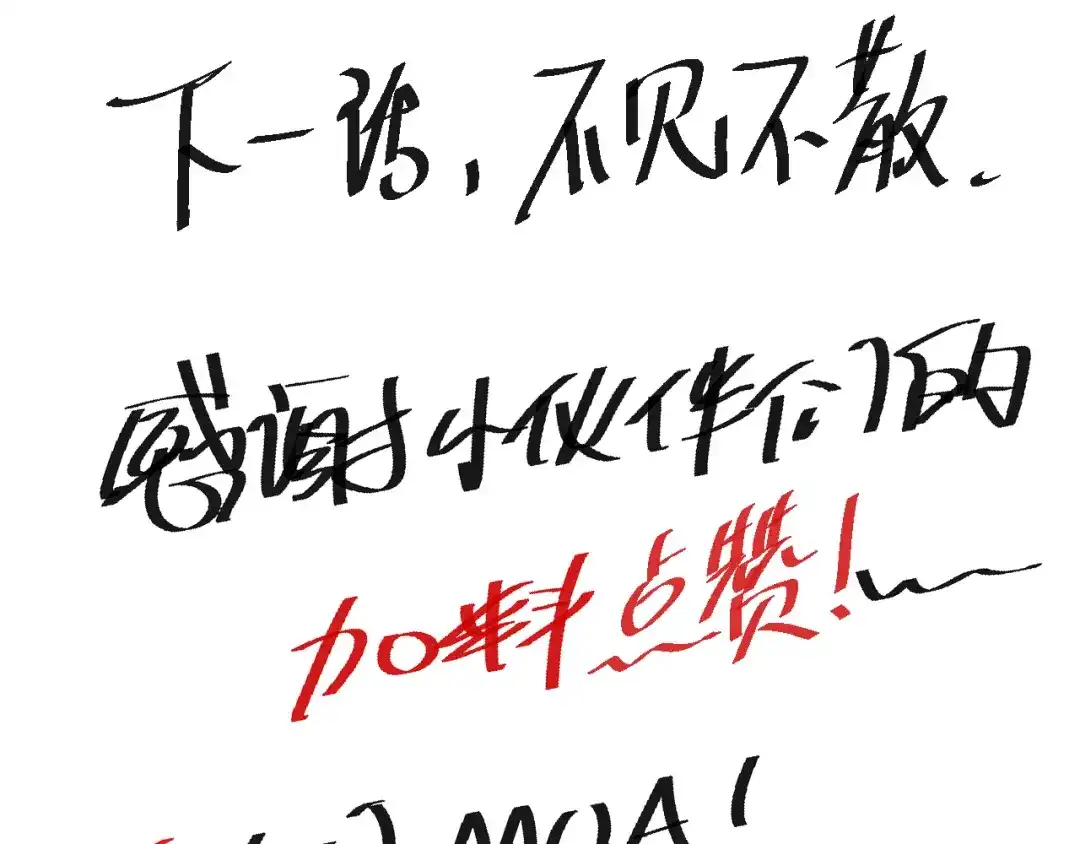 下一话，不见不散.
感谢小伙伴们的
加料点赞！~
MUA！